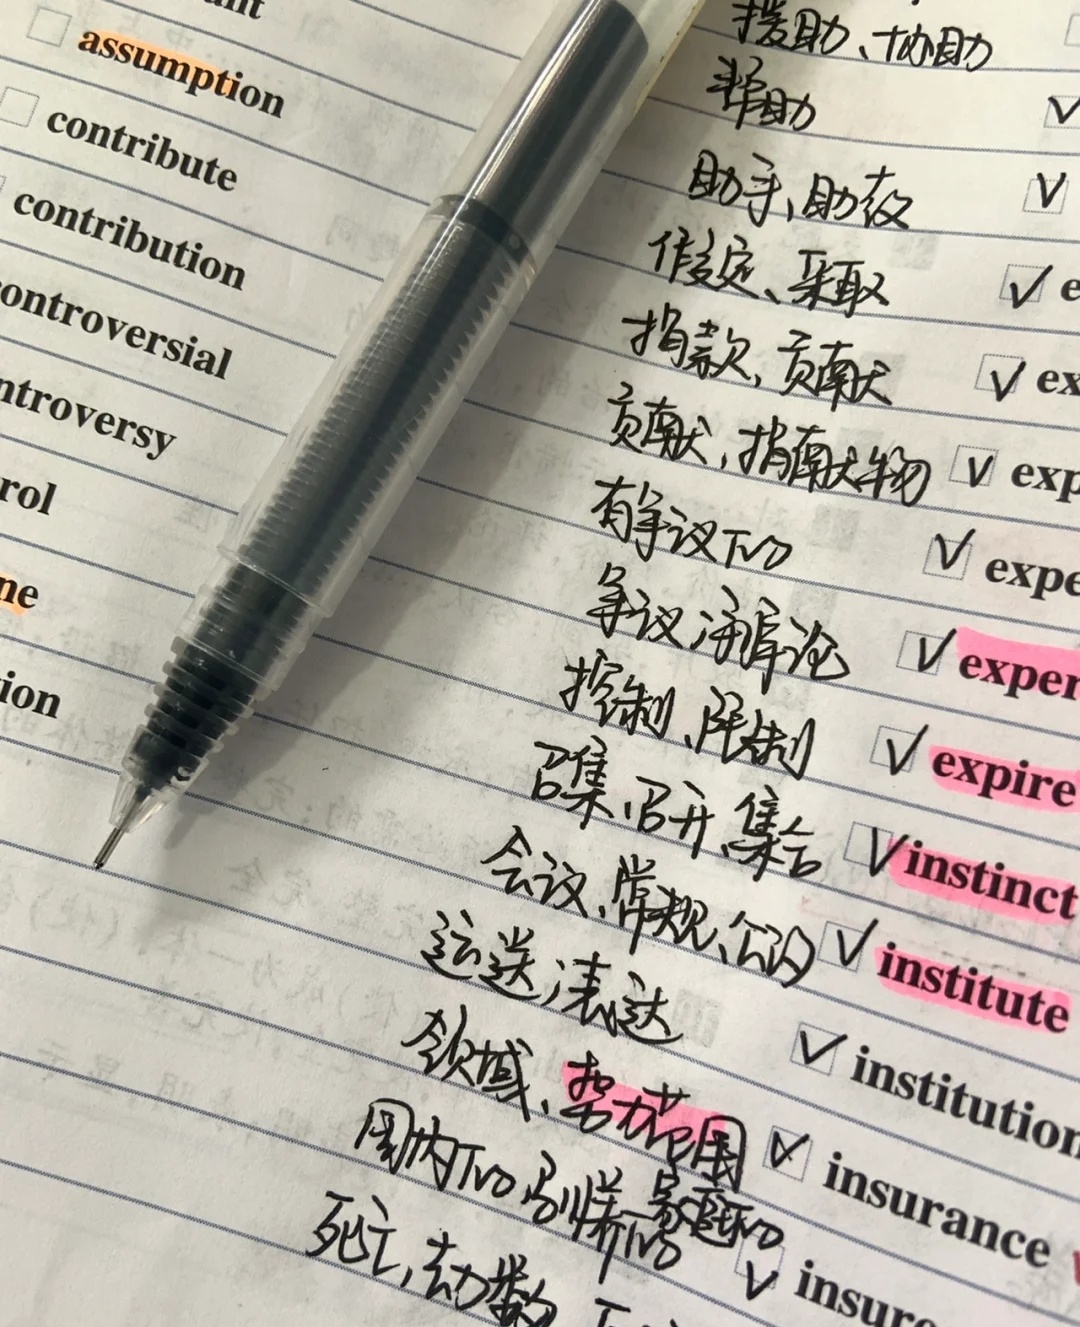 assumption
contribute
contribution
controversial
ntroversy
rol
ne
ion
援助、协助
帮助
助手、助教
假定、采取
捐款、贡献
贡献、捐献物
有争议的
争议 辩论
控制、限制
召集、召开、集合
会议、常规、公认
运送,表达
领域、势力范围
国内的
死亡,去世
e
ex
exp
expe
exper
expire
instinct
institute
institution
insurance
insure